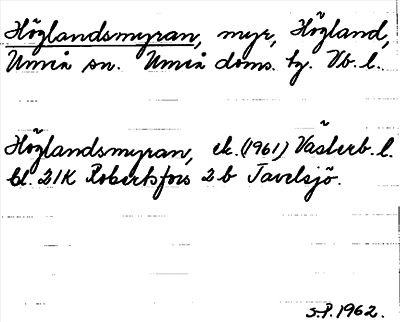 Höglandsmyran, myr, Högland,
Umeå sn. Umeå doms. tg. Vb. l.
Höglandsmyran, ek. (1961) Västerb. l.
bl. 21K Robertsfors 2b Tavelsjö.
S.P. 1962.